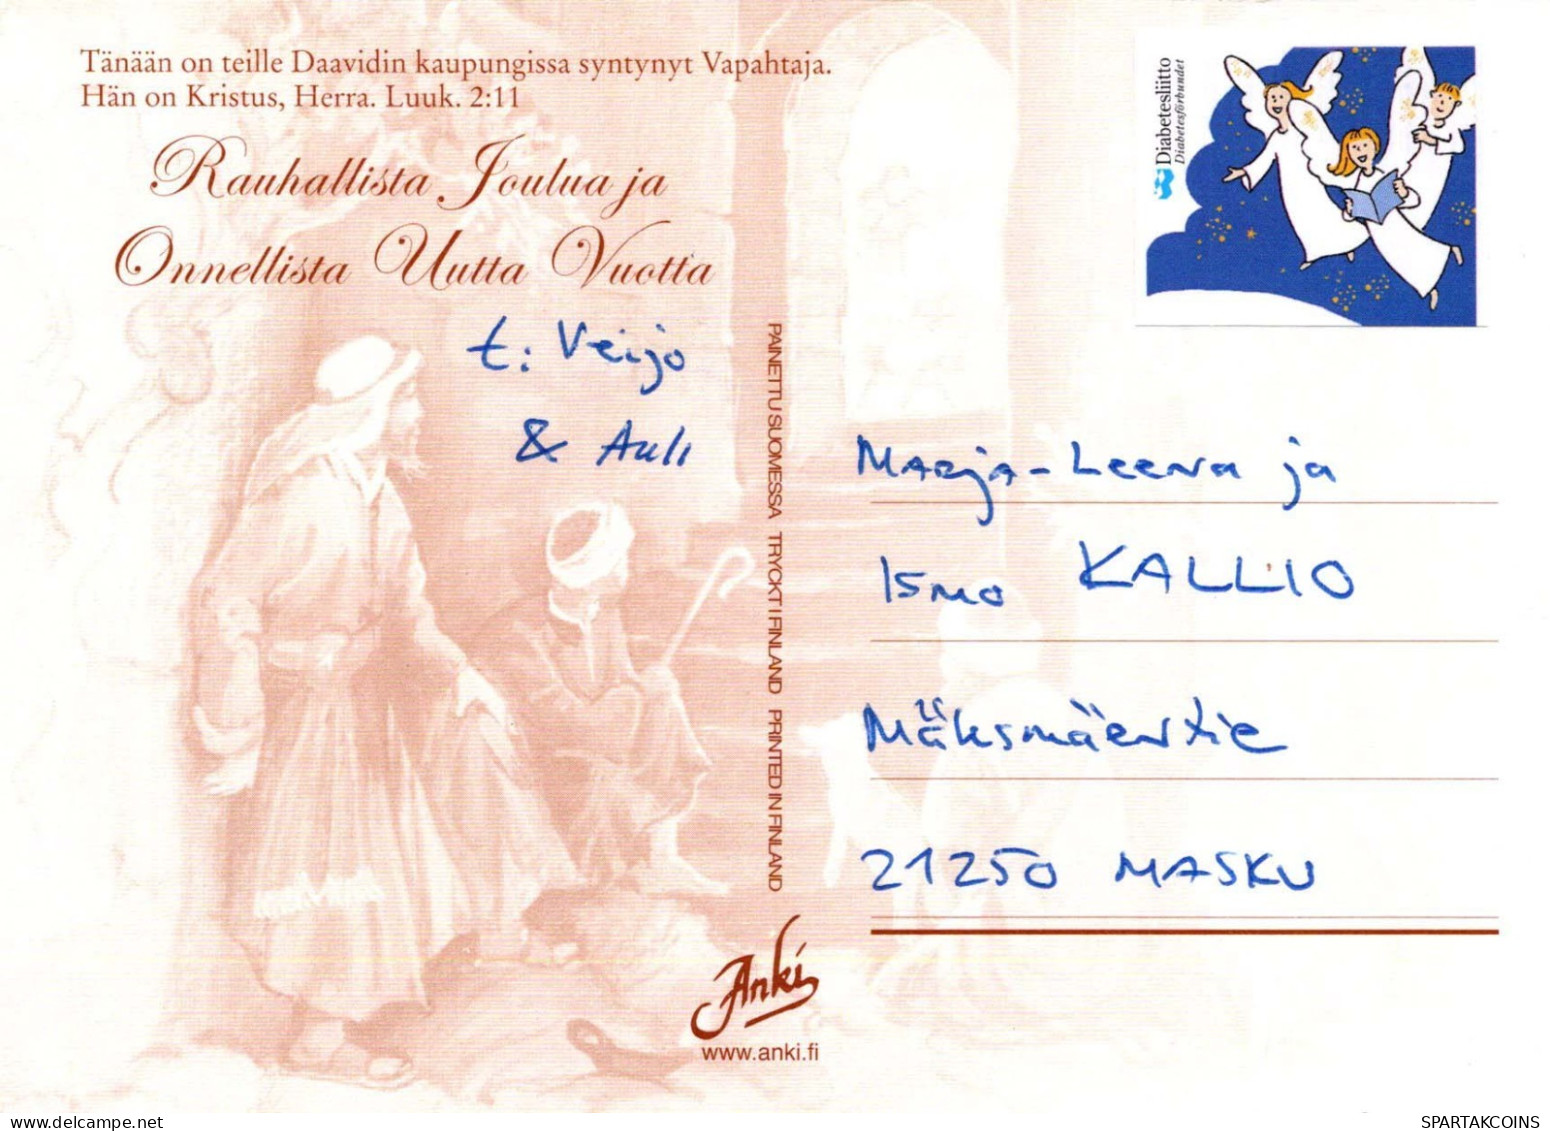 Tänään on teille Daavidin kaupungissa syntynyt Vapahtaja.
Hän on Kristus, Herra. Luuk. 2:11
Rauhallista Joulua ja
Onnellista Uutta Vuotta
t: Veijo
& Auli
Diabetesliitto
Diabetesförbundet
PAINETTU SUOMESSA TRYCKT I FINLAND PRINTED IN FINLAND
Marja-Leena ja
Ismo KALLIO
Mäksmäentie
21250 MASKU
Anki
www.anki.fi
delcampe.net
SPARTAKCOINS